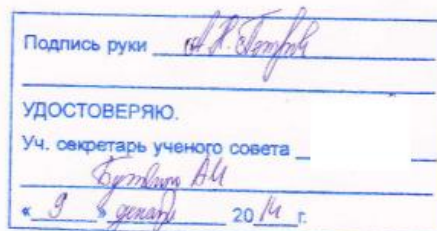 Подпись руки А.Н. Петров
УДОСТОВЕРЯЮ.
Уч. секретарь ученого совета
АИ
« 9 » декабря 2014 г.